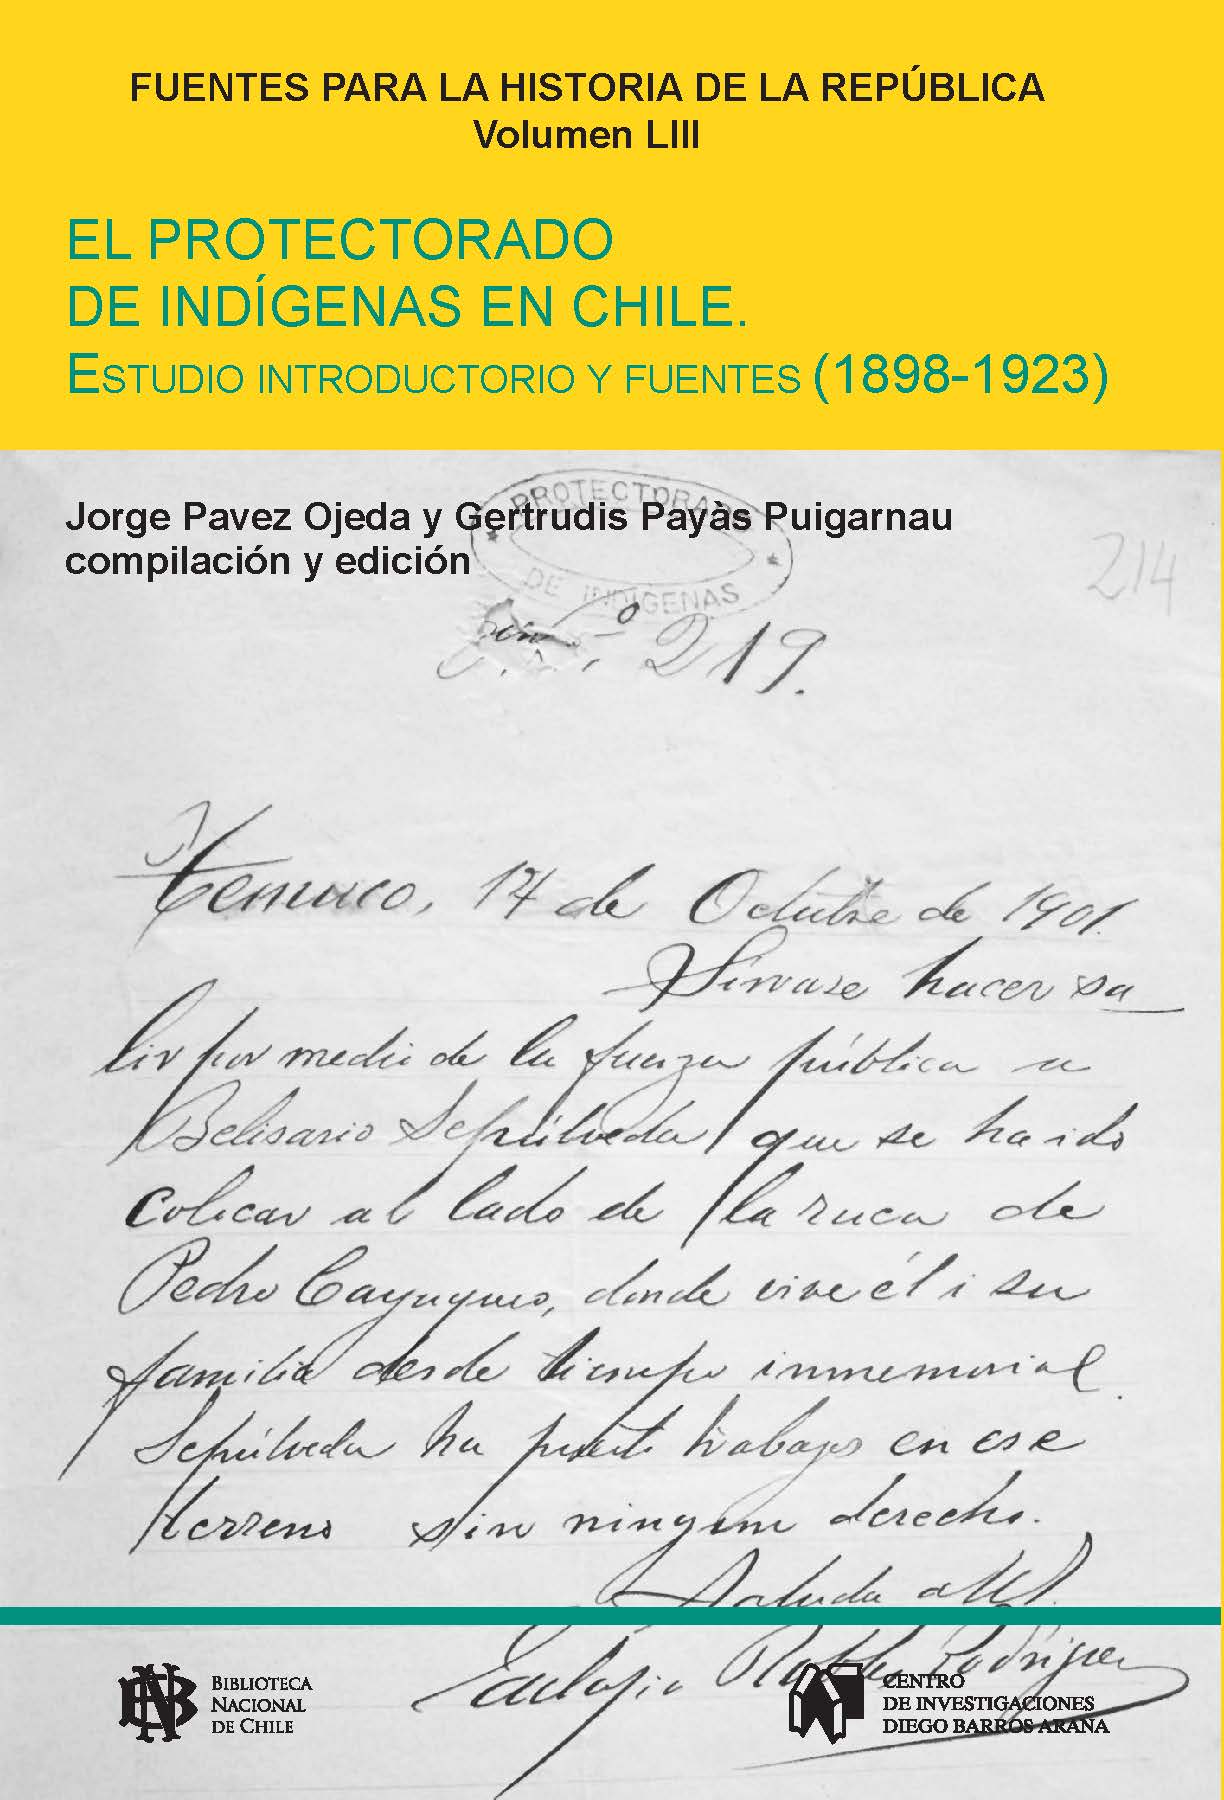 FUENTES PARA LA HISTORIA DE LA REPÚBLICA
Volumen LIII
EL PROTECTORADO
DE INDÍGENAS EN CHILE.
ESTUDIO INTRODUCTORIO Y FUENTES (1898-1923)
Jorge Pavez Ojeda y Gertrudis Payàs Puigarnau
compilación y edición
PROTECTORADO
DE INDÍGENAS
214
219.
Temuco, 17 de Octubre de 1901.
Sírvase hacer sa
lir por medio de la fuerza pública a
Belisario Sepúlveda que se ha ido
colocar al lado de la ruca de
Pedro Cayuqueo, donde vive él i su
familia desde tiempo inmemorial.
Sepúlveda ha puesto trabajos en ese
terreno sin ningun derecho.
Saluda a Ud.
Eulojio Robles Rodríguez
BIBLIOTECA
NACIONAL
DE CHILE
CENTRO
DE INVESTIGACIONES
DIEGO BARROS ARANA